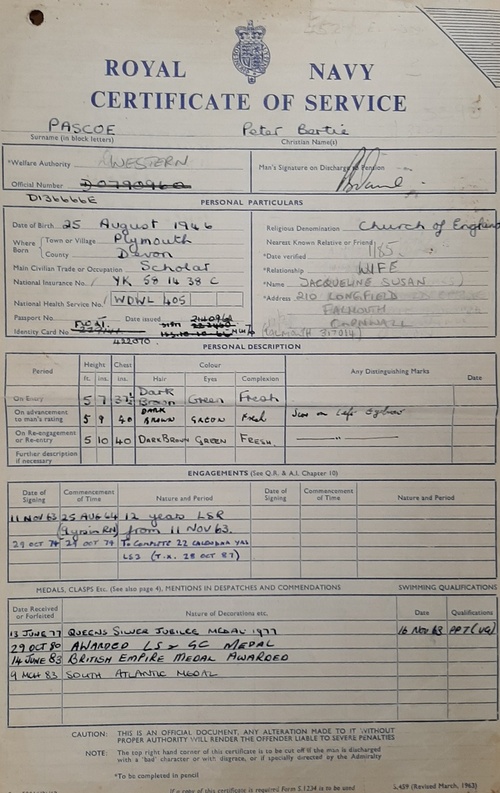 ROYAL NAVY
CERTIFICATE OF SERVICE
PASCOE Peter Bertie
Surname (in block letters) Christian Name(s)
*Welfare Authority WESTERN Man's Signature on Discharge to Pension
Official Number D079096
D136666E
PERSONAL PARTICULARS
Date of Birth 25 August 1946 Religious Denomination Church of England
Where Born Town or Village Plymouth Nearest Known Relative or Friend
County Devon *Date verified 1/85
Main Civilian Trade or Occupation Scholar *Relationship WIFE
National Insurance No. YK 58 14 38 C *Name JACQUELINE SUSAN
National Health Service No. WDWL 405 *Address 210 LONGFIELD
Passport No. Date issued FALMOUTH
CORNWALL
Identity Card No. (FALMOUTH 317014)
422070
PERSONAL DESCRIPTION
Period Height Chest Colour Any Distinguishing Marks Date
ft. in. ins. Hair Eyes Complexion
On Entry 5 7 37½ Dark Brown Green Fresh
On advancement to man's rating 5 9 40 DARK BROWN GREEN Fresh Scar on Left Eyebrow
On Re-engagement or Re-entry 5 10 40 DARK BROWN GREEN FRESH
Further description if necessary
ENGAGEMENTS (See Q.R. & A.I. Chapter 10)
Date of Signing Commencement of Time Nature and Period Date of Signing Commencement of Time Nature and Period
11 NOV 63 25 AUG 64 12 years LSR
from 11 NOV 63.
29 OCT 74 29 OCT 74 TO COMPLETE 22
LS3 (T.X. 28 OCT 87)
MEDALS, CLASPS Etc. (See also page 4), MENTIONS IN DESPATCHES AND COMMENDATIONS SWIMMING QUALIFICATIONS
Date Received or Forfeited Nature of Decorations etc. Date Qualifications
13 JUNE 77 QUEENS SILVER JUBILEE MEDAL 1977 16 NOV 63 PPT (UG)
29 OCT 80 AWARDED LS & GC MEDAL
14 JUNE 83 BRITISH EMPIRE MEDAL AWARDED
9 MCH 83 SOUTH ATLANTIC MEDAL
CAUTION: THIS IS AN OFFICIAL DOCUMENT. ANY ALTERATION MADE TO IT WITHOUT
PROPER AUTHORITY WILL RENDER THE OFFENDER LIABLE TO SEVERE PENALTIES
NOTE: The top right hand corner of this certificate is to be cut off if the man is discharged
with a 'bad' character or with disgrace, or if specially directed by the Admiralty
*To be completed in pencil
If a copy of this certificate is required Form S.1234 is to be used S.459 (Revised March, 1963)